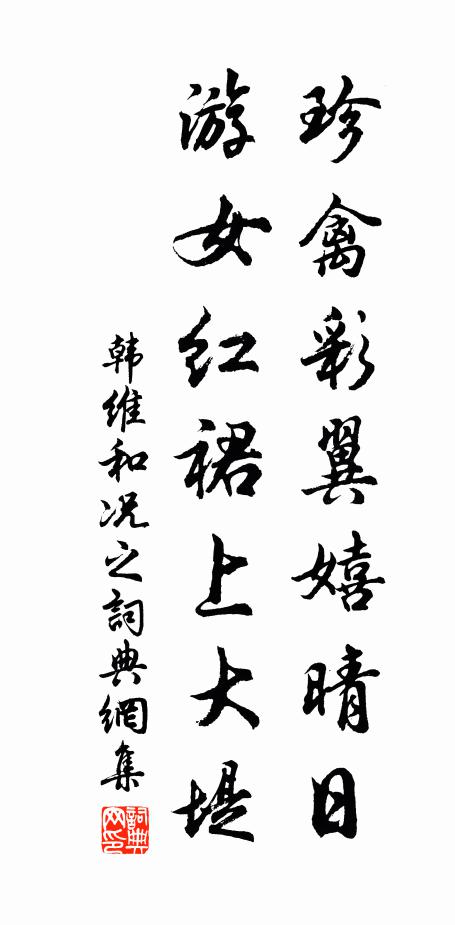 珍禽彩翼嬉晴日
游女红裙上大堤
韩维和况之詞典網集
詞典网印